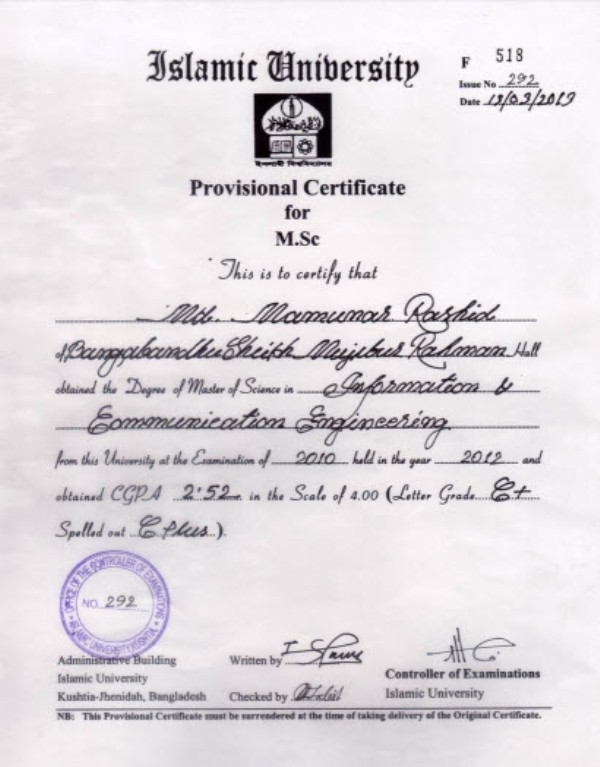 Islamic University
F 518
Issue No 292
Date /03/2013
ইসলামী বিশ্ববিদ্যালয়
Provisional Certificate
for
M.Sc
This is to certify that
Md. Mamunar Rashid
of Bangabandhu Sheikh Mujibur Rahman Hall
obtained the Degree of Master of Science in Information &
Communication Engineering
from this University at the Examination of 2010 held in the year 2012 and
obtained CGPA 2.52 in the Scale of 4.00 (Letter Grade C+
Spelled out C Plus).
OFFICE OF THE CONTROLLER OF EXAMINATIONS
NO. 292
ISLAMIC UNIVERSITY KUSHTIA
Administrative Building
Islamic University
Kushtia-Jhenidah, Bangladesh
Written by
Checked by
Controller of Examinations
Islamic University
NB: This Provisional Certificate must be surrendered at the time of taking delivery of the Original Certificate.